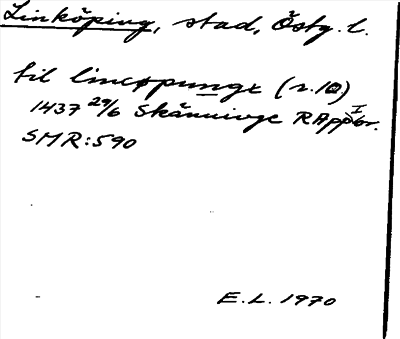 Linköping, stad, Östg. l.
til lincøpunge (r. 10)
1437 29/6 Skänninge RApp I br.
SMR:590
E.L. 1970